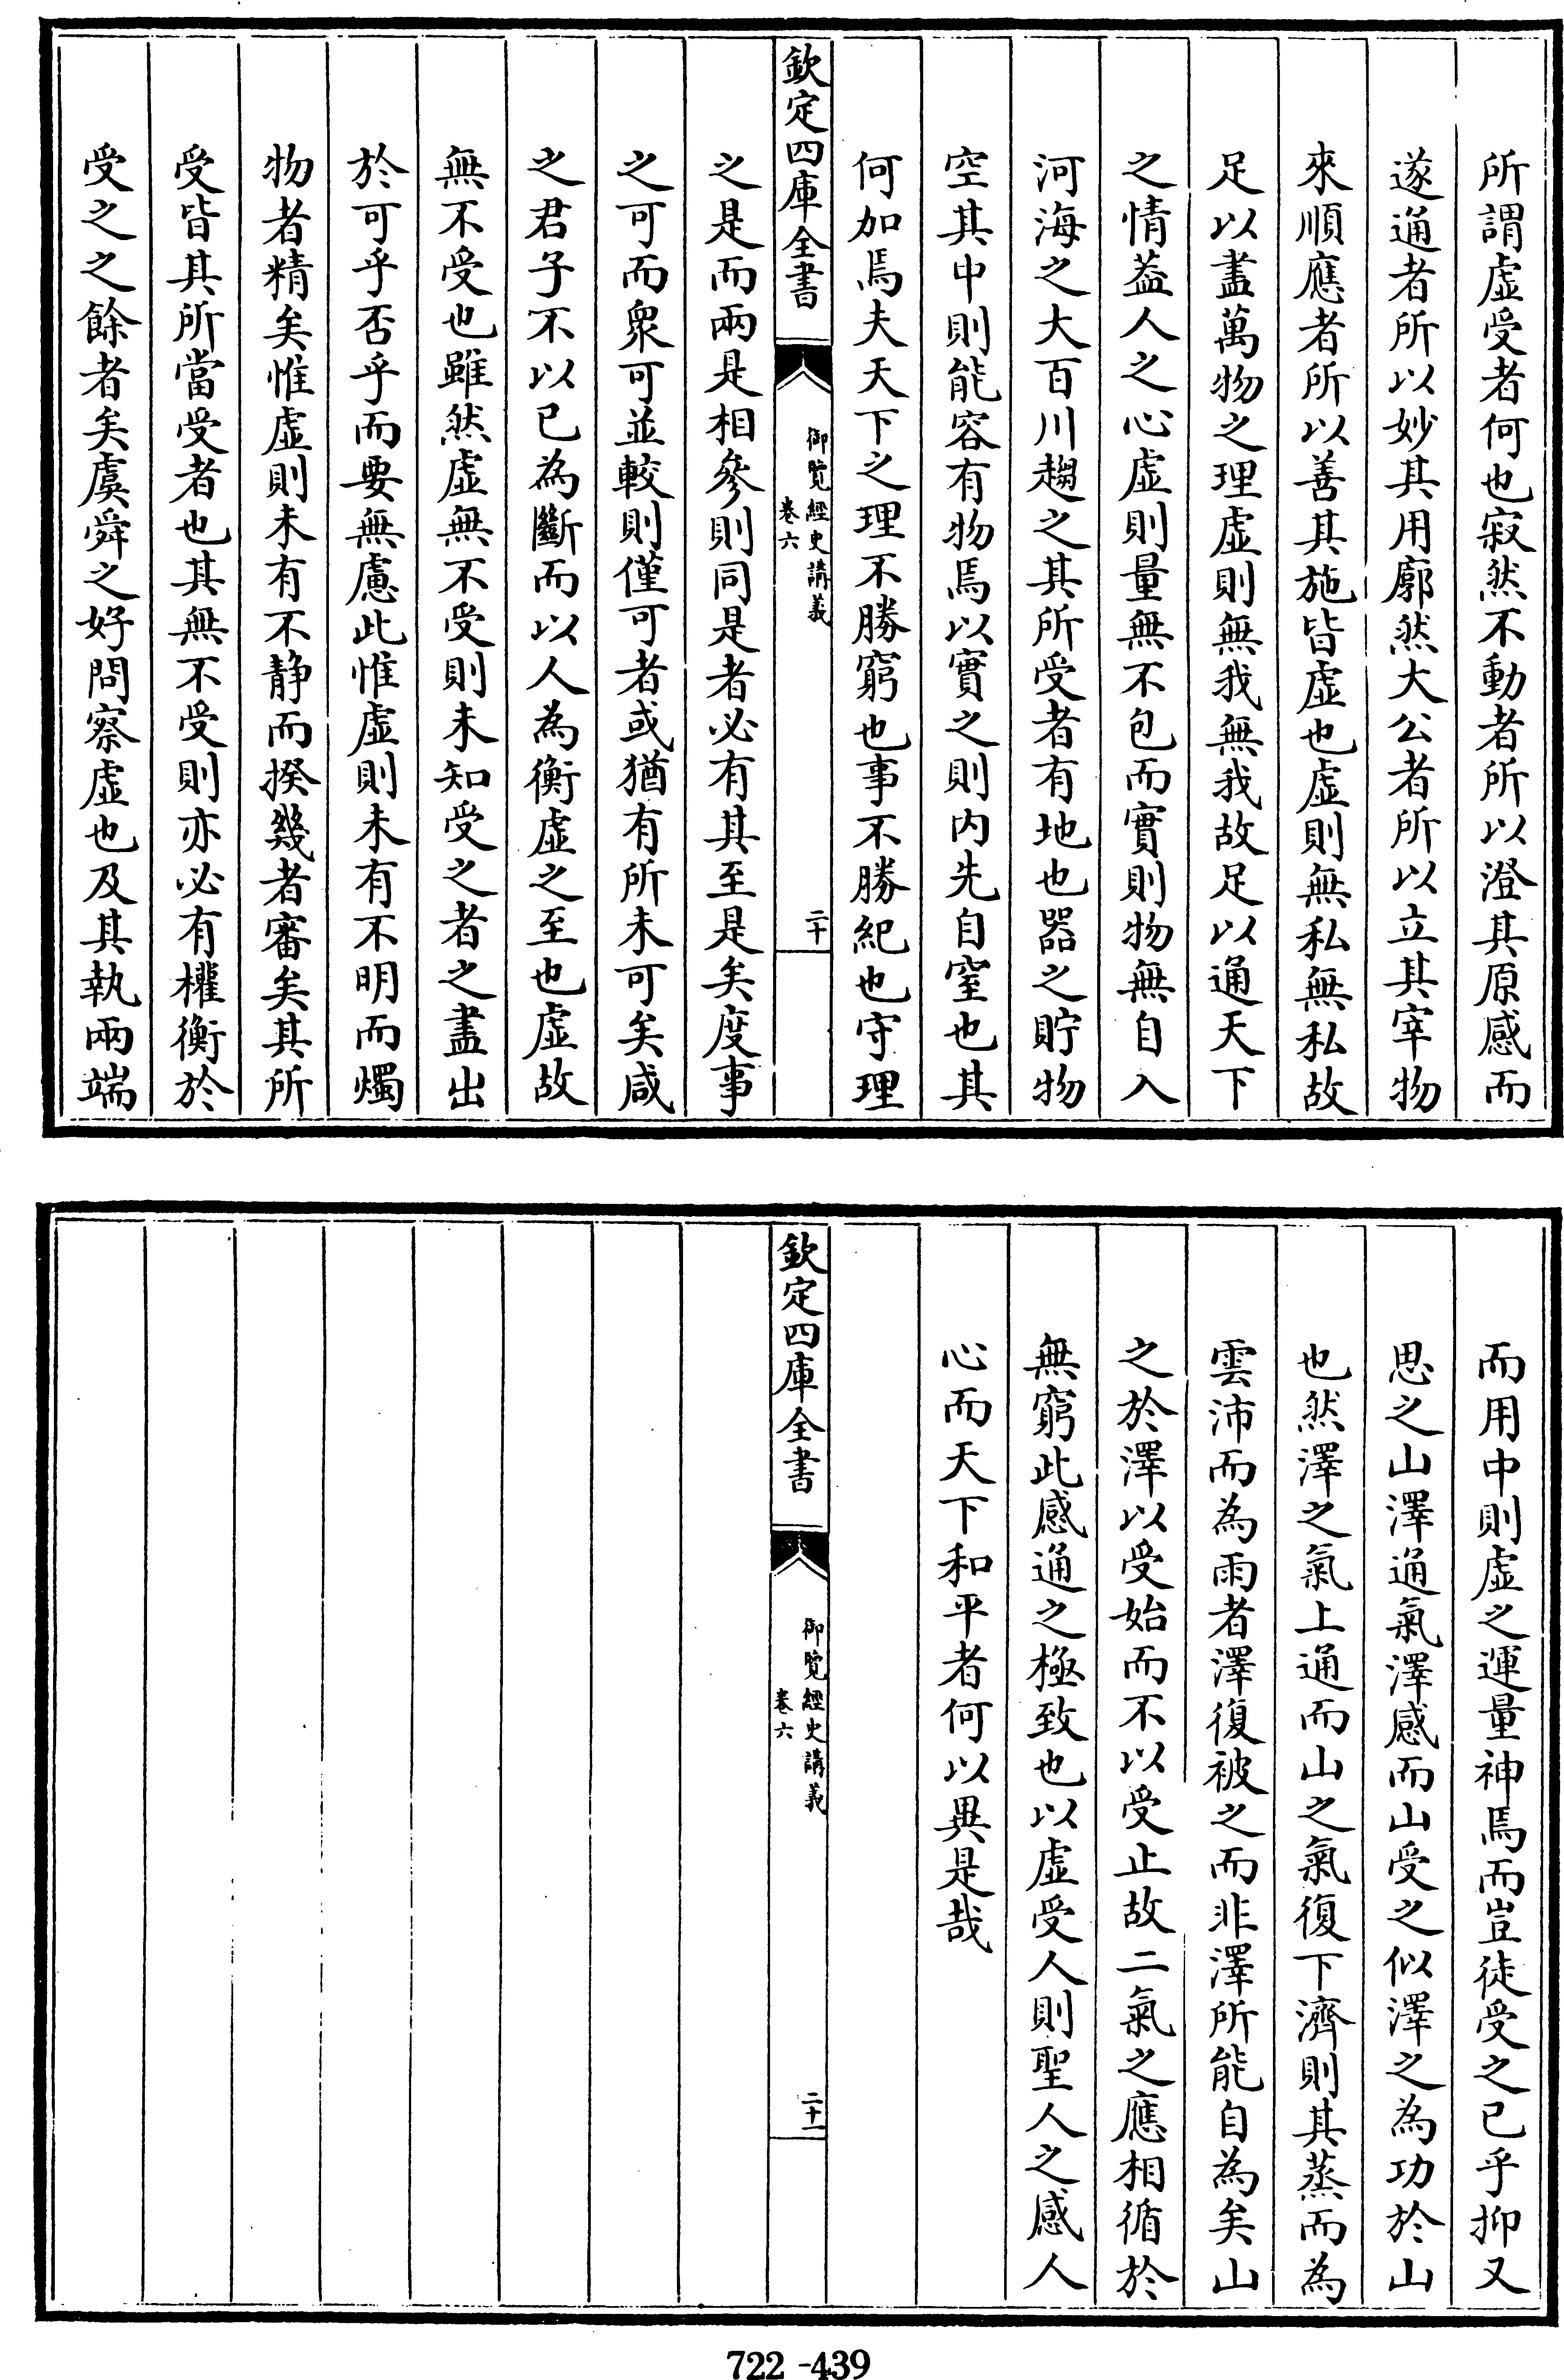 所謂虛受者何也寂然不動者所以澄其原感而
遂通者所以妙其用廓然大公者所以立其宰物
來順應者所以善其施皆虛也虛則無私無私故
足以盡萬物之理虛則無我無我故足以通天下
之情葢人之心虛則量無不包而實則物無自入
河海之大百川趨之其所受者有地也器之貯物
空其中則能容有物焉以實之則內先自窒也其
何加焉夫天下之理不勝窮也事不勝紀也守理
欽定四庫全書
御覽經史講義
卷六
二十
之是而兩是相參則同是者必有其至是矣度事
之可而衆可並較則僅可者或猶有所未可矣咸
之君子不以已為斷而以人為衡虛之至也虛故
無不受也雖然虛無不受則未知受之者之盡出
於可乎否乎而要無慮此惟虛則未有不明而燭
物者精矣惟虛則未有不静而揆幾者審矣其所
受皆其所當受者也其無不受則亦必有權衡於
受之之餘者矣虞舜之好問察虛也及其執兩端
而用中則虛之運量神焉而豈徒受之已乎抑又
思之山澤通氣澤感而山受之似澤之為功於山
也然澤之氣上通而山之氣復下濟則其蒸而為
雲沛而為雨者澤復被之而非澤所能自為矣山
之於澤以受始而不以受止故二氣之應相循於
無窮此感通之極致也以虛受人則聖人之感人
心而天下和平者何以異是哉
欽定四庫全書
御覽經史講義
卷六
二十一
722-439